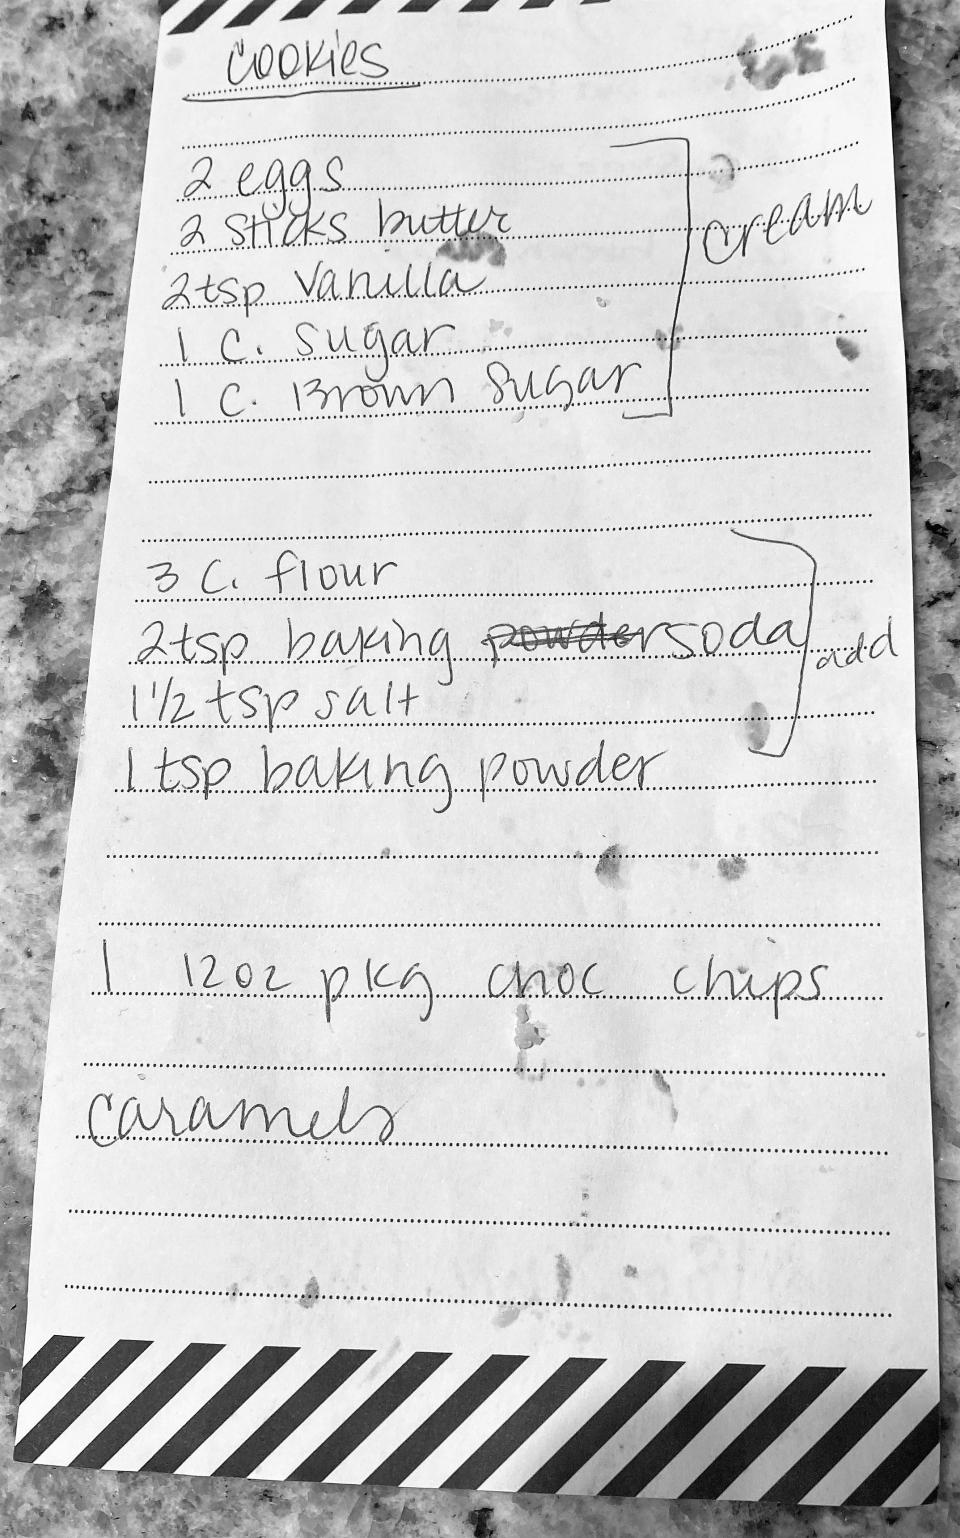 Cookies
2 eggs
2 sticks butter
cream
2 tsp vanilla
1 c. sugar
1 c. Brown sugar
3 c. flour
2 tsp baking powder soda
add
1 1/2 tsp salt
1 tsp baking powder
1 12oz pkg choc chips
caramels